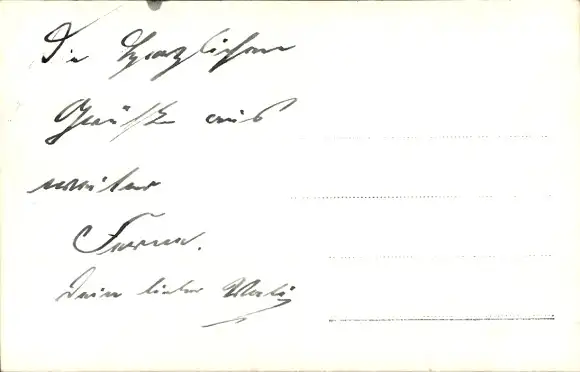 Die herzlichen
Grüße aus
weiter
Ferne.
Dein lieber